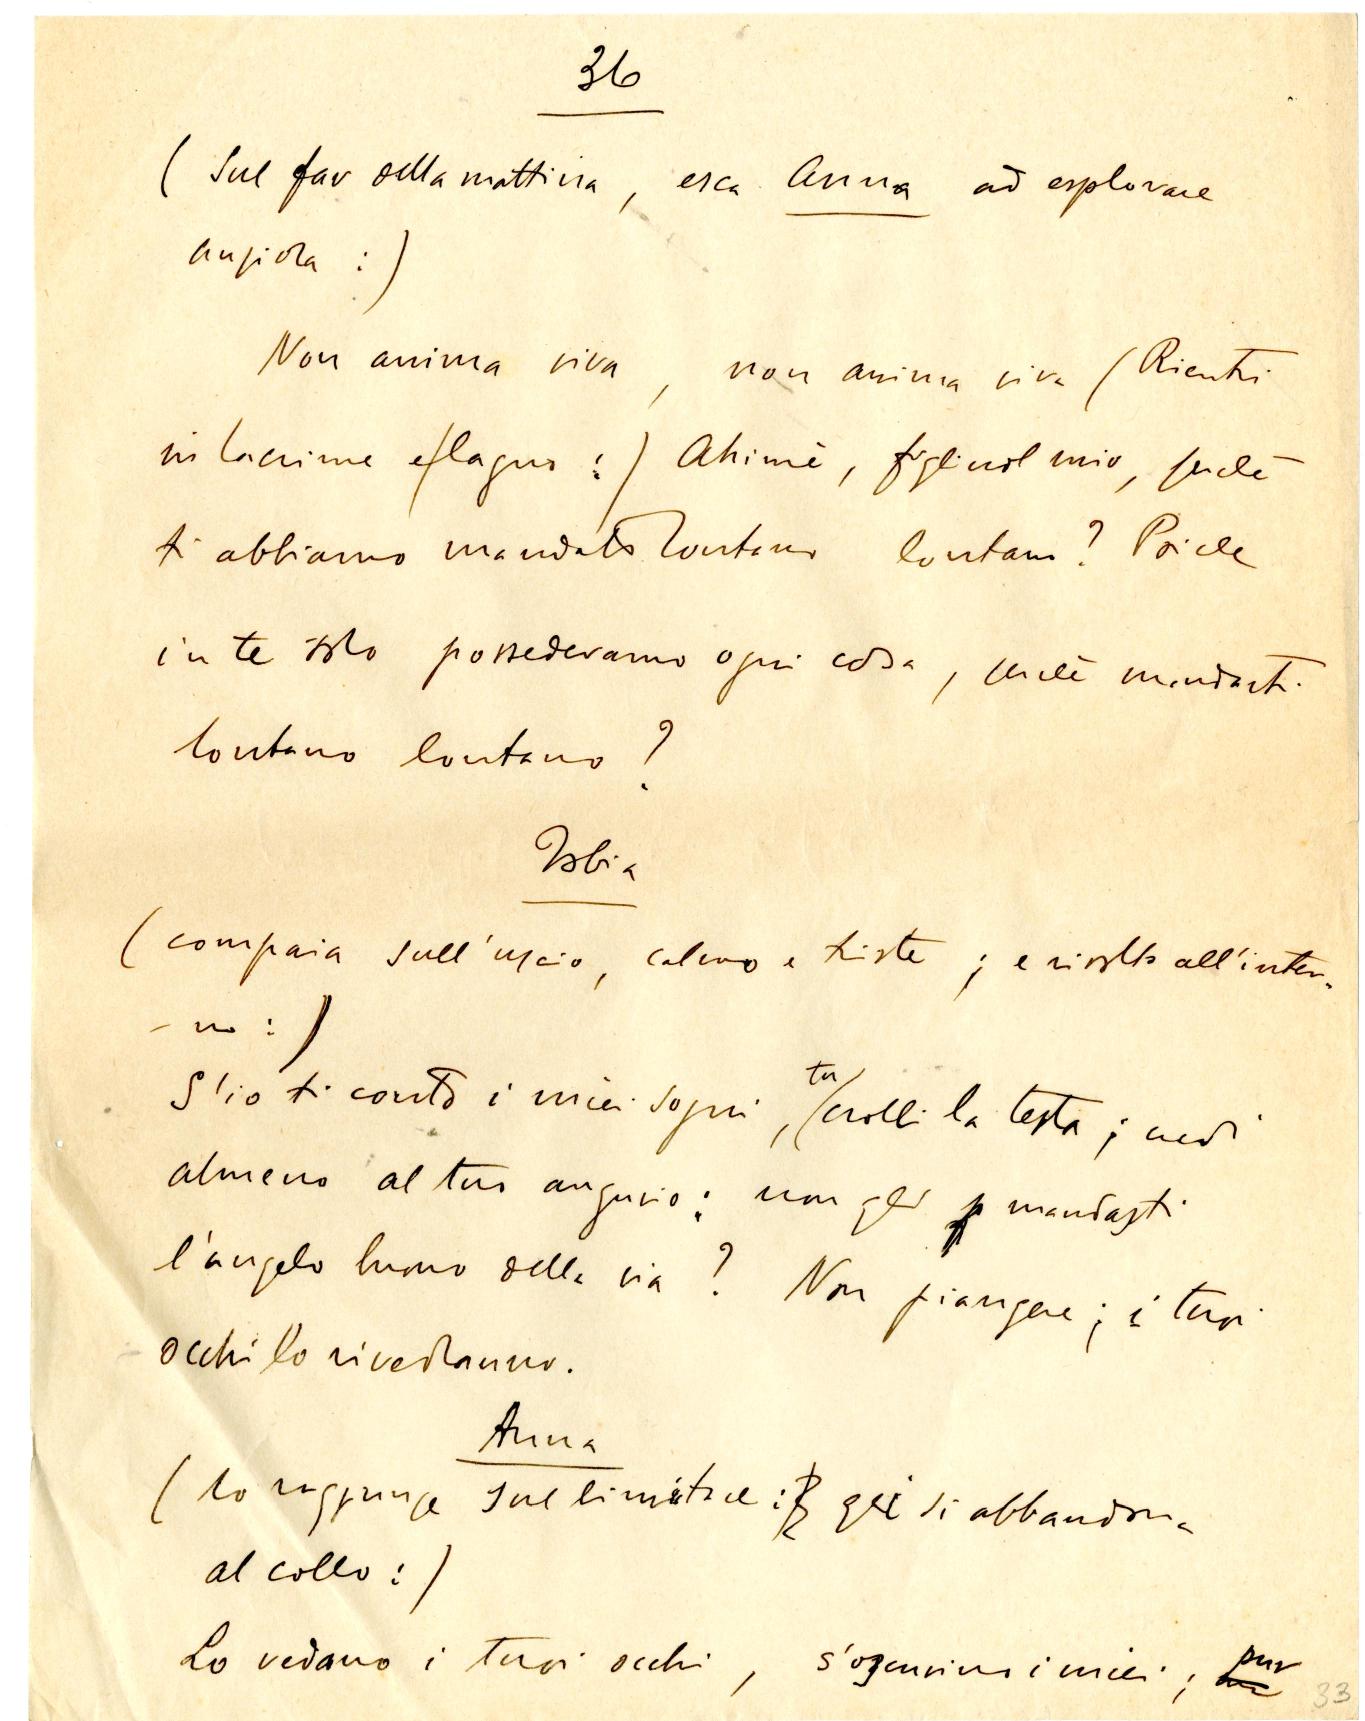 36
( Sul far della mattina, esca Anna ad esplorare
angiola :)
Non anima viva, non anima viva (Rientri
in lacrime e lagni :) Ahimè, figliuol mio, perchè
ti abbiamo mandato lontano lontano? Poichè
in te solo possedevamo ogni cosa, perchè mandarti
lontano lontano?
Tobia
(compaia sull'uscio, calmo e triste; e rivolto all'inter-
- no :)
S'io ti conto i miei sogni, tu crolli la testa; credi
almeno al tuo augurio: non gli mandasti
l'angelo buono della via? Non piangere; i tuoi
occhi lo rivedranno.
Anna
( lo raggiunge sul limitare: gli si abbandona
al collo :)
Lo vedano i tuoi occhi, s'oscurino i miei; pur
33